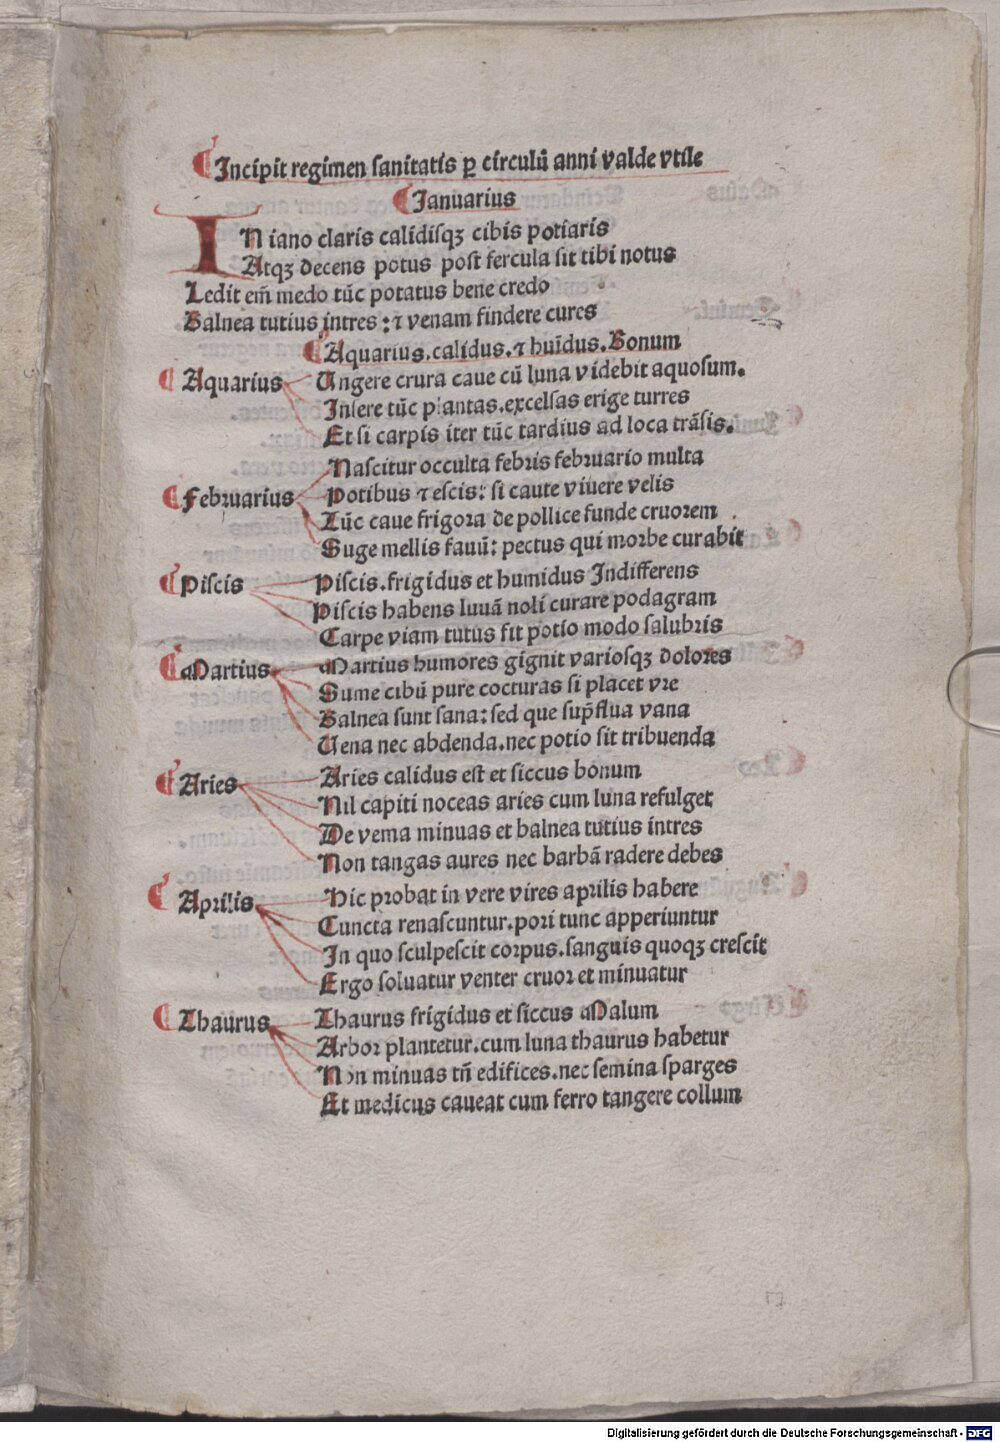 ¶Incipit regimen ſanitatis ꝑ circulū anni valde vtile
¶Januarius
IN iano claris calidiſqꝫ cibis potiaris
Atqꝫ decens potus poſt fercula ſit tibi notus
Ledit em̄ medo tūc potatus bene credo
Balnea tutius intres: ⁊ venam findere cures
¶Aquarius.calidus.⁊ huīdus.Bonum
¶Aquarius Ungere crura caue cū luna videbit aquoſum.
Inſere tūc plantas.excelſas erige turres
Et ſi carpis iter tūc tardius ad loca trāſis.
Naſcitur occulta febris februario multa
¶Februarius Potibus ⁊ eſcis: ſi caute viuere velis
Tūc caue frigora de pollice funde cruorem
Suge mellis fauū: pectus qui morbe curabit
¶Piſcis Piſcis.frigidus et humidus Indifferens
Piſcis habens luuā noli curare podagram
Carpe viam tutus ſit potio modo ſalubris
¶Martius Martius humores gignit varioſqꝫ dolores
Sume cibū pure cocturas ſi placet vre
Balnea ſunt ſana: ſed que ſuꝑflua vana
Uena nec abdenda.nec potio ſit tribuenda
¶Aries Aries calidus eſt et ſiccus bonum
Nil capiti noceas aries cum luna refulget
De vema minuas et balnea tutius intres
Non tangas aures nec barbā radere debes
¶Aprilis Hic probat in vere vires aprilis habere
Cuncta renaſcuntur.pori tunc apperiuntur
In quo ſculpeſcit corpus.ſanguis quoqꝫ creſcit
Ergo ſoluatur venter cruor et minuatur
¶Thaurus Thaurus frigidus et ſiccus Malum
Arbor plantetur.cum luna thaurus habetur
Non minuas tn̄ edifices.nec ſemina ſparges
Et medicus caueat cum ferro tangere collum
Digitalisierung gefördert durch die Deutsche Forschungsgemeinschaft - DFG